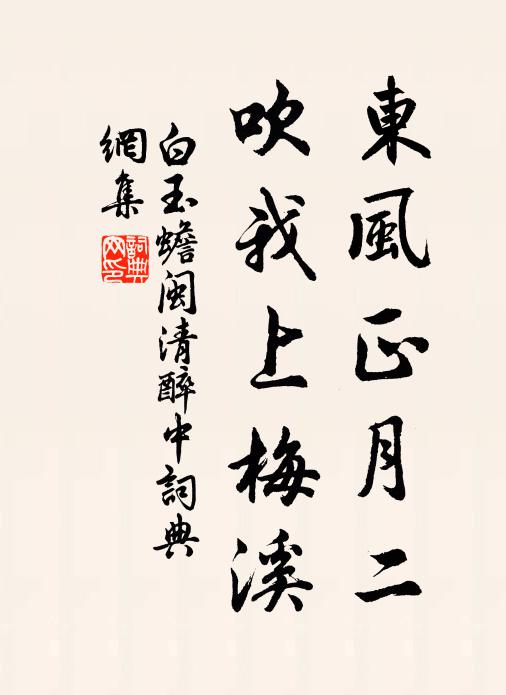 東風正月二
吹我上梅溪
白玉蟾閩清醉中詞典
網集
詞典
网印